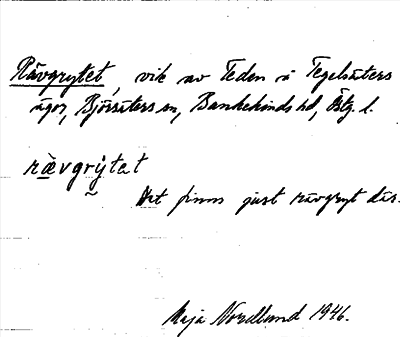 Rävgrytet, vik av Teden å Tegelsäters
ägor, Björsäters sn, Bankekinds hd, Östg. l.
rävgrytet
Det finns just rävgryt där.
Maja Nordlund 1946.